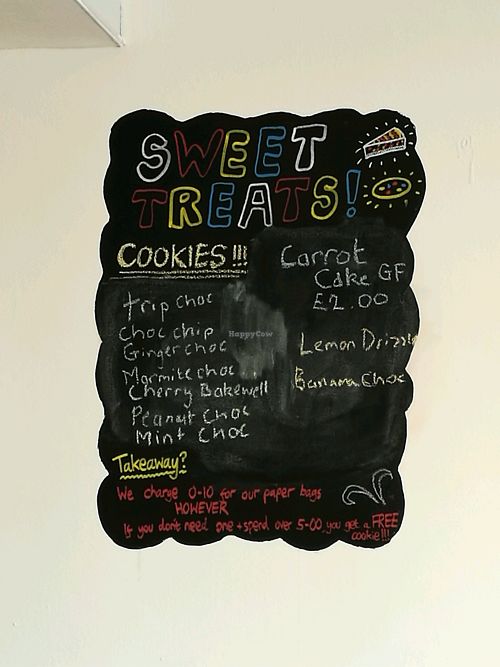 SWEET
TREATS!
COOKIES!!!
Trip Choc
Choc chip
Ginger choc
Marmite choc
Cherry Bakewell
Peanut Choc
Mint Choc
Carrot
Cake GF
£2.00
Lemon Drizzle
Banana Choc
HappyCow
Takeaway?
We charge 0-10 for our paper bags
HOWEVER
If you don't need one + spend over 5-00 you get a FREE
cookie!!!